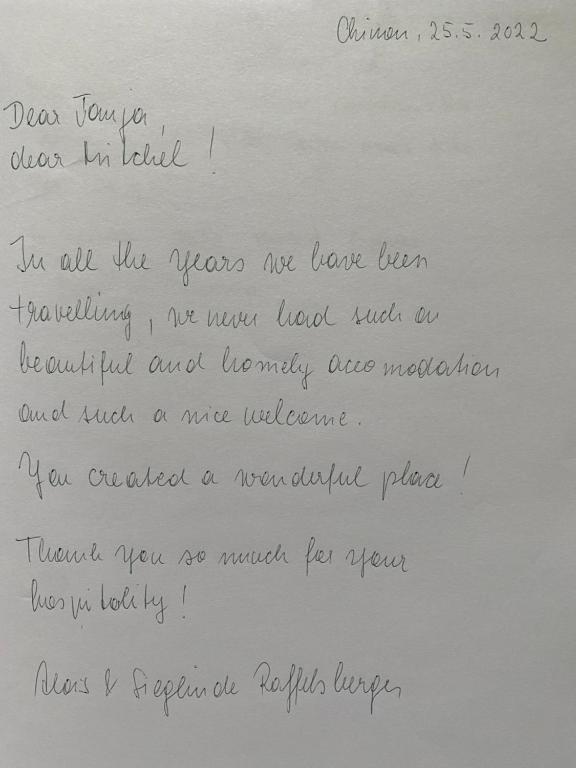 Chinon, 25.5.2022
Dear Tanja,
dear Mitchel!
In all the years we have been
travelling, we never had such a
beautiful and homely accomodation
and such a nice welcome.
You created a wonderful place!
Thank you so much for your
hospitality!
Alois & Sieglinde Raffelsberger